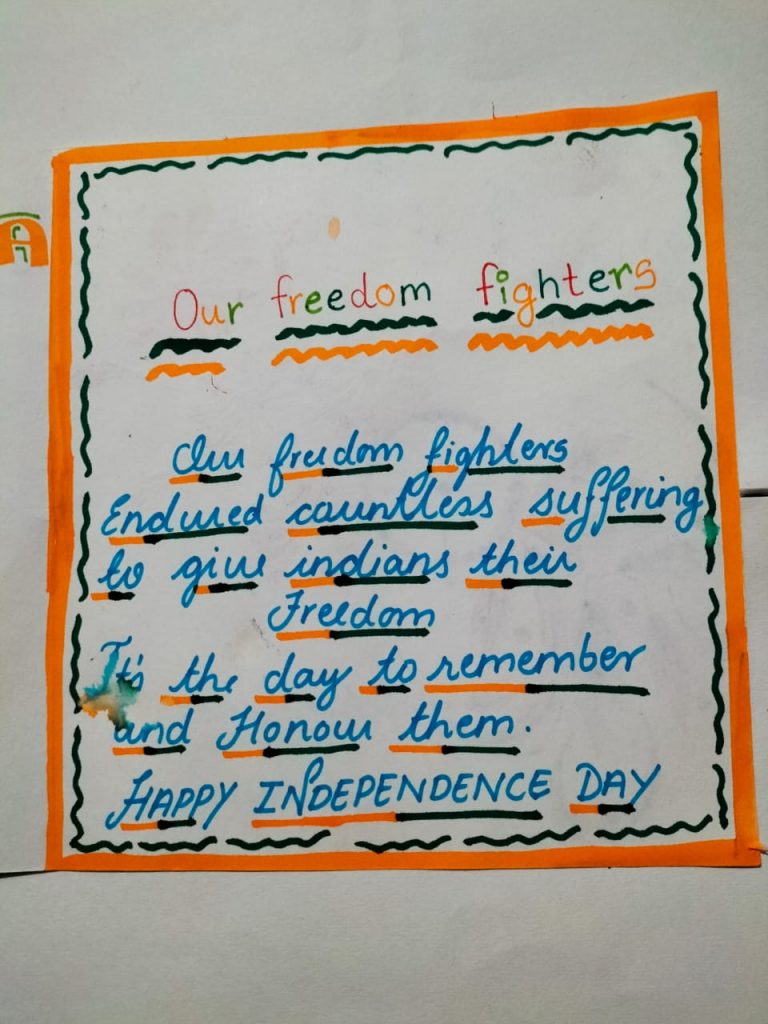 Our freedom fighters
Our freedom fighters
Endured countless suffering
to give indians their
Freedom
It's the day to remember
and Honour them.
HAPPY INDEPENDENCE DAY